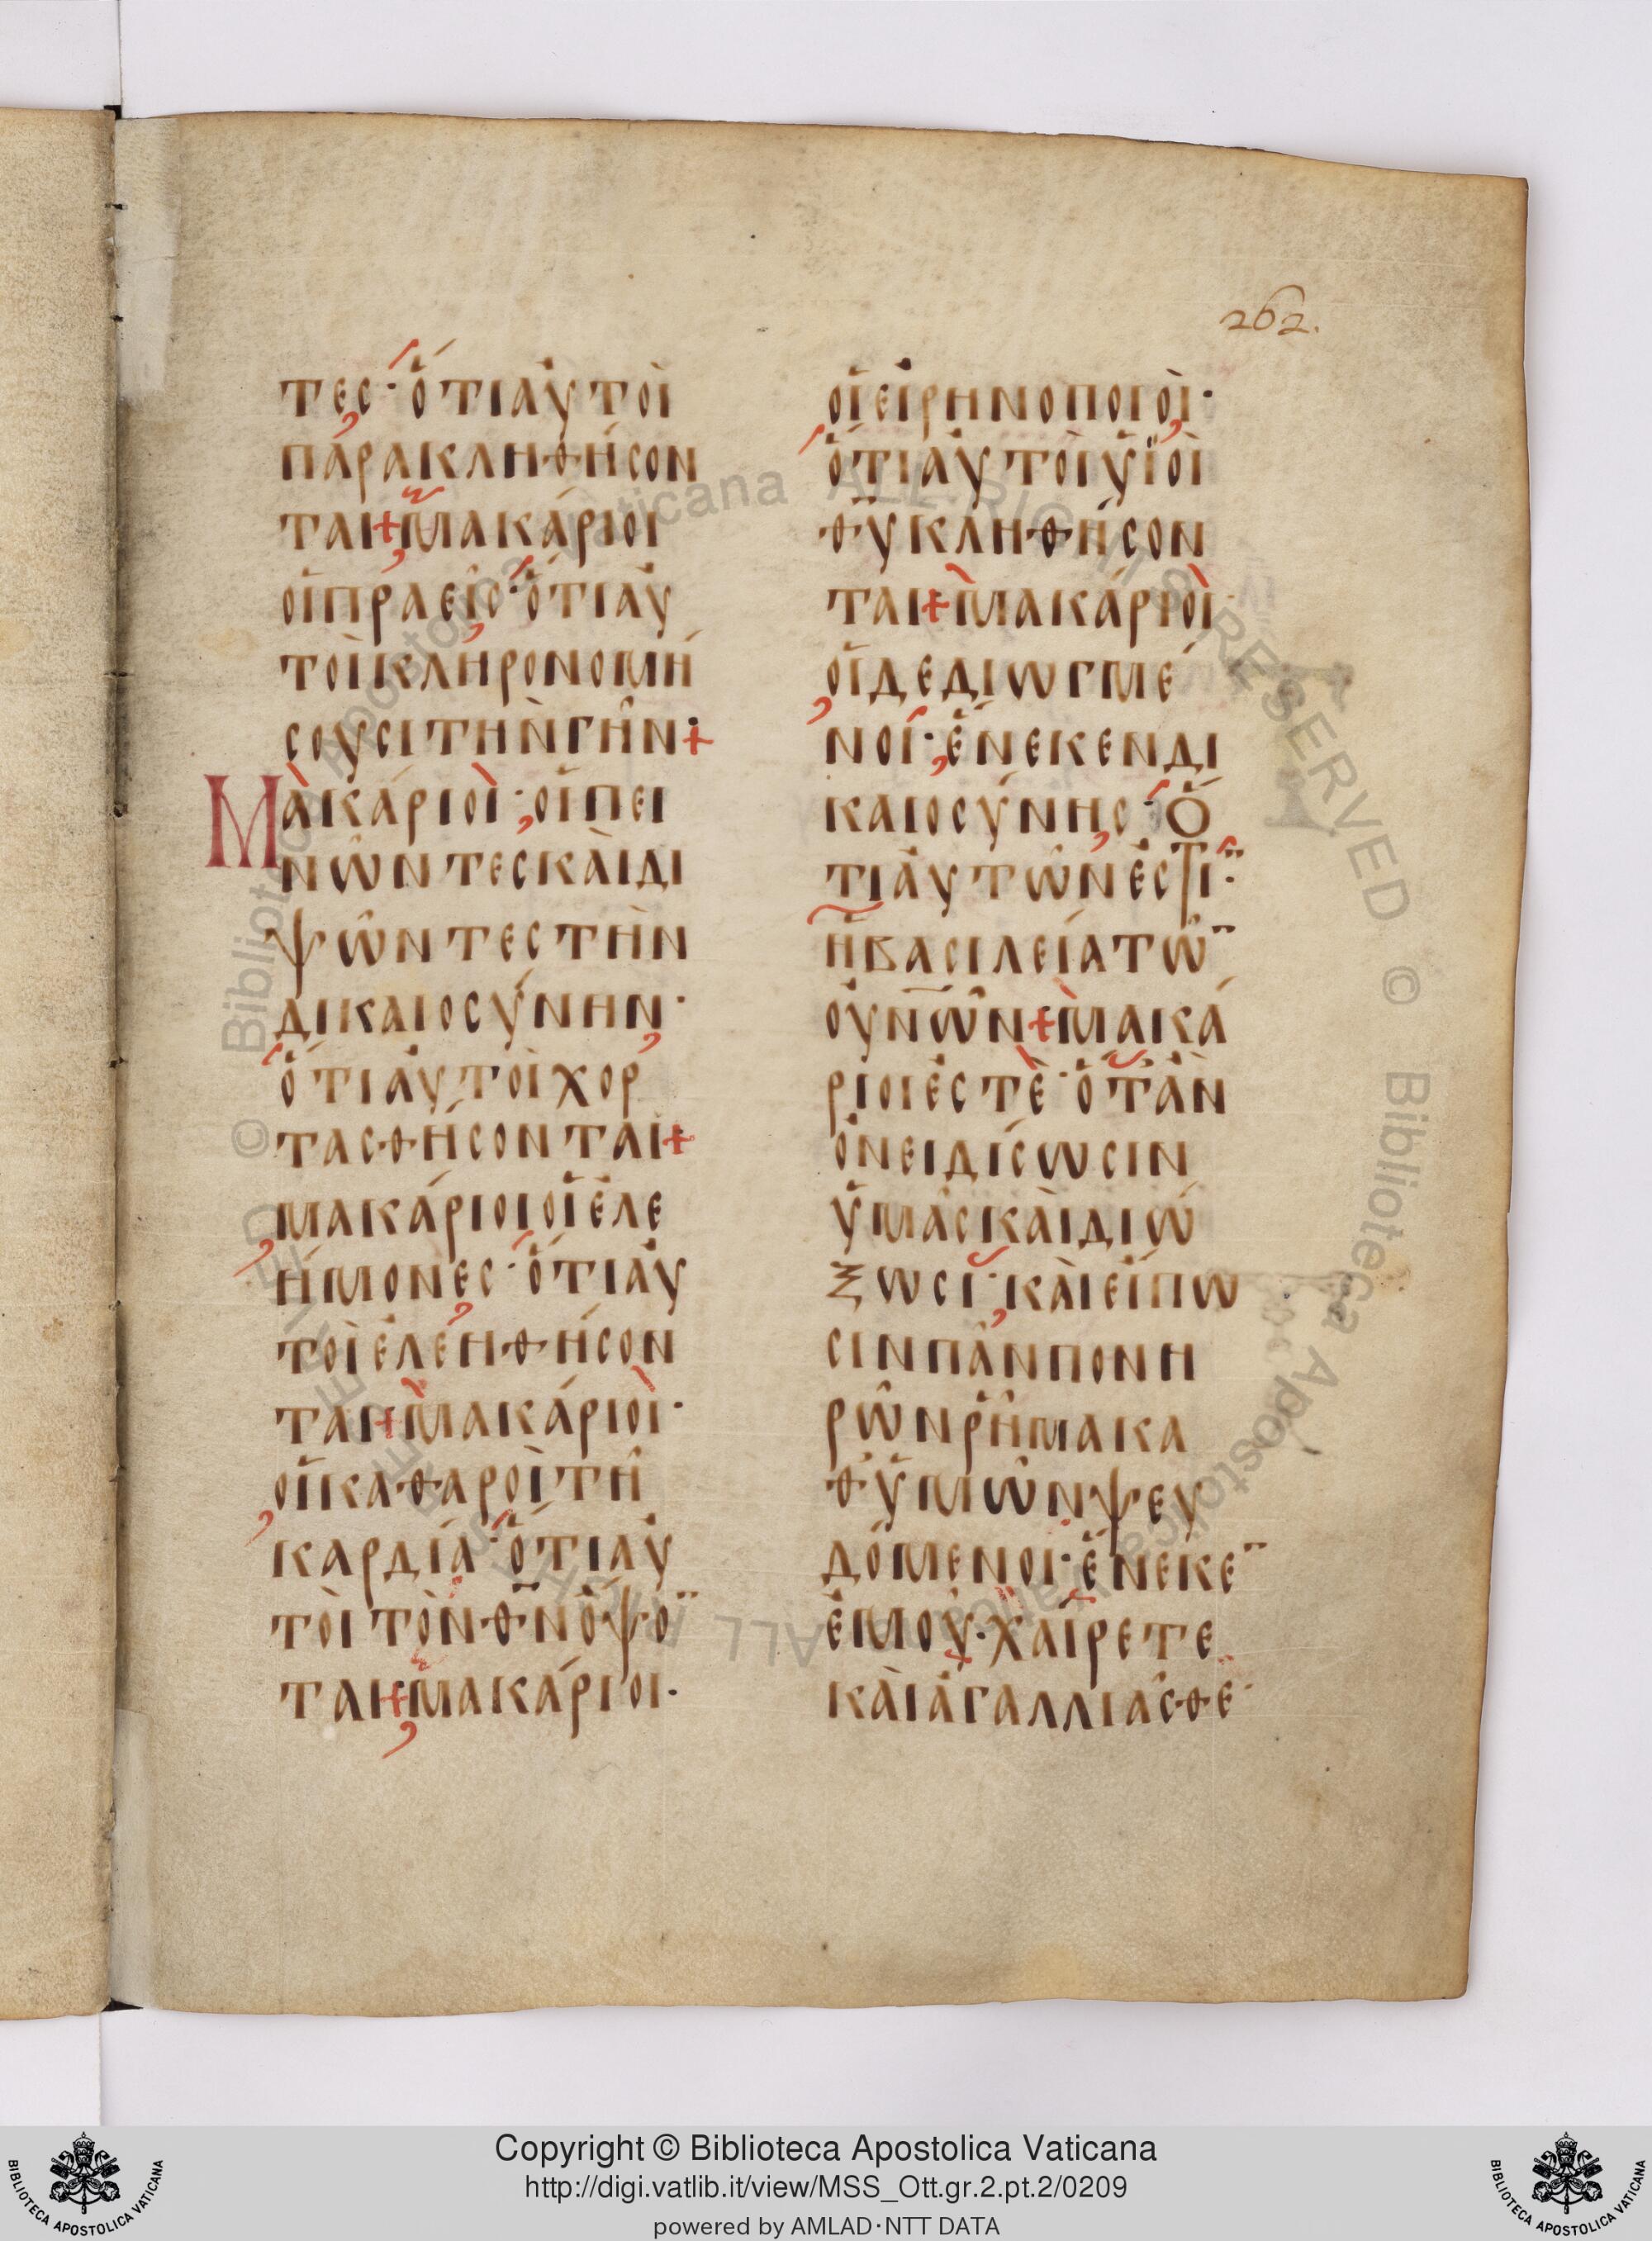 262.
τες· ὅτι αὐτοὶ
παρακληθήσον
ται + μακάριοι
οἱ πραεῖς· ὅτι αὐ
τοὶ κληρονομή
σουσι τὴν γῆν +
Μακάριοι· οἱ πει
νῶντες καὶ δι
ψῶντες τὴν
δικαιοσύνην·
ὅτι αὐτοὶ χορ
τασθήσονται +
μακάριοι οἱ ἐλε
ήμονες· ὅτι αὐ
τοὶ ἐλεηθήσον
ται + μακάριοι·
οἱ καθαροὶ τῇ
καρδία· ὅτι αὐ
τοὶ τὸν θ̅ν̅ ὄψο̅
ται + μακάριοι·
οἱ εἰρηνοποιοί·
ὅτι αὐτοὶ υἱοὶ
θ̅υ̅ κληθήσον
ται + μακάριοι
οἱ δεδιωγμέ
νοι· ἕνεκεν δι
καιοσύνης· ὅ
τι αὐτῶν ἐστι̅·
ἡ βασιλεία τῶ̅
ο̅υ̅ν̅ω̅ν + μακά
ριοι ἐστὲ· ὅταν
ὀνειδίσωσιν
ὑμᾶς καὶ διώ
ξωσι· καὶ εἴπω
σιν πᾶν πονη
ρῶν ῥῆμα κα
θ᾽ ὑμῶν ψευ
δόμενοι· ἕνεκε̅
ἐμοῦ· χαίρετε
καὶ ἀγαλλιᾶσθε·
Copyright © Biblioteca Apostolica Vaticana
http://digi.vatlib.it/view/MSS_Ott.gr.2.pt.2/0209
powered by AMLAD·NTT DATA
BIBLIOTECA APOSTOLICA VATICANA
BIBLIOTECA APOSTOLICA VATICANA